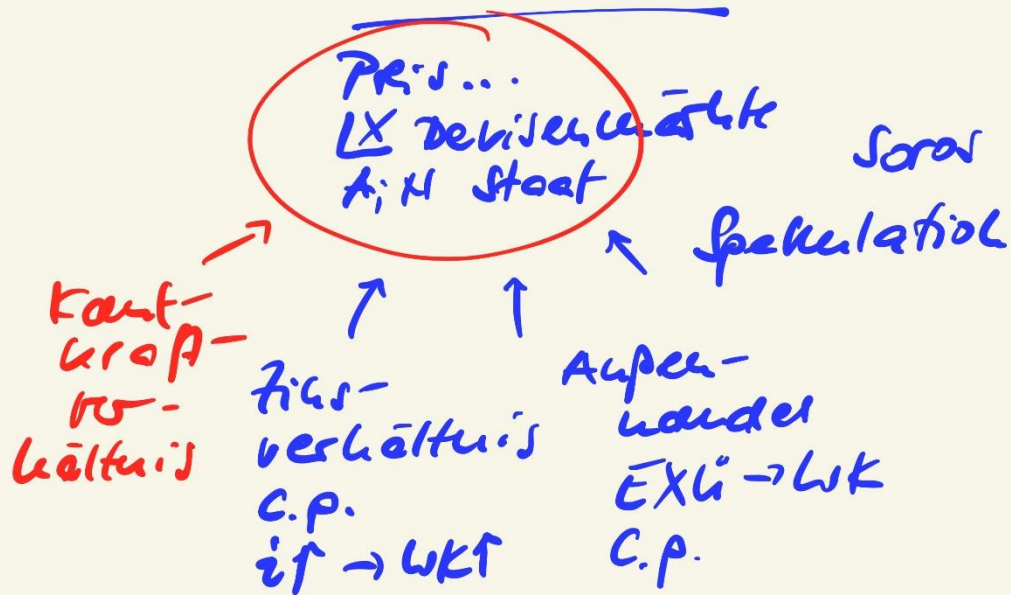 Preis...
LX Devisenmärkte
A; N Staat
Soros
Spekulation
Kauf-
kraft-
ver-
hältnis
Zins-
verhältnis
c.p.
i↑ → WK↑
Außen-
handel
EXÜ → WK
c.p.